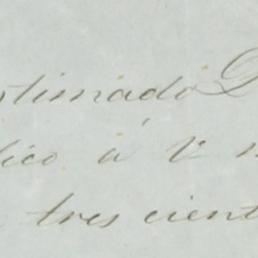 stimado D
lico á V n
tres cient